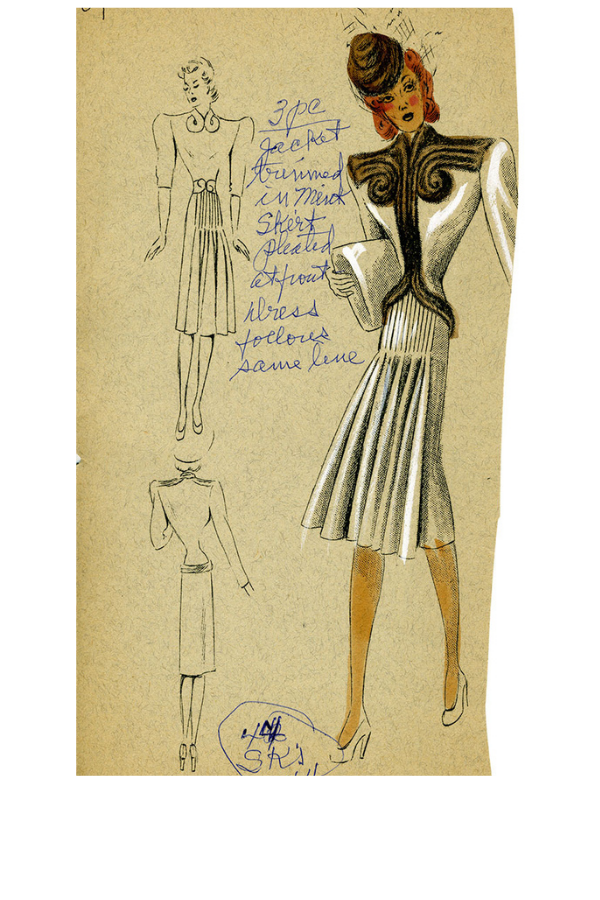 3 pc
jacket
trimmed
in Mink
Skirt
pleated
at front
dress
follows
same line
SK's